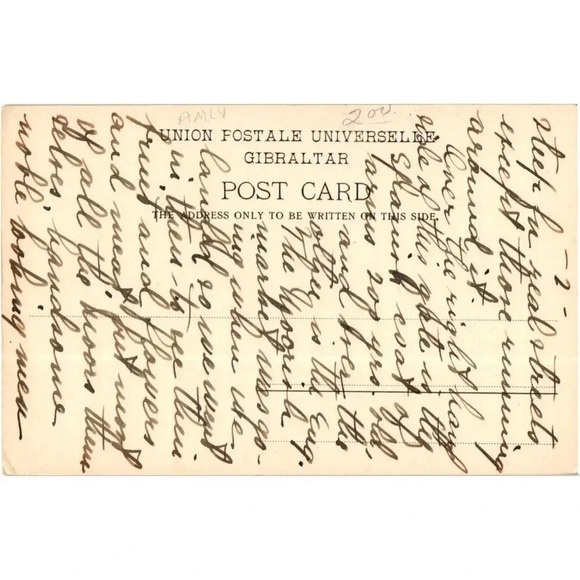 AMLV
2 00.
UNION POSTALE UNIVERSELLE
GIBRALTAR
POST CARD
THE ADDRESS ONLY TO BE WRITTEN ON THIS SIDE.
-2-
steep for real streets
except those running
around it.
Over the right hand
side of this gate is the
Spanish coat of
arms 20 yrs. old
and over the
other is the Eng.
The Moorish
market was go-
ing when we
landed so we went
in there to see their
fruit and flowers
and meat but most
of all the moors them
selves, handsome
noble looking men